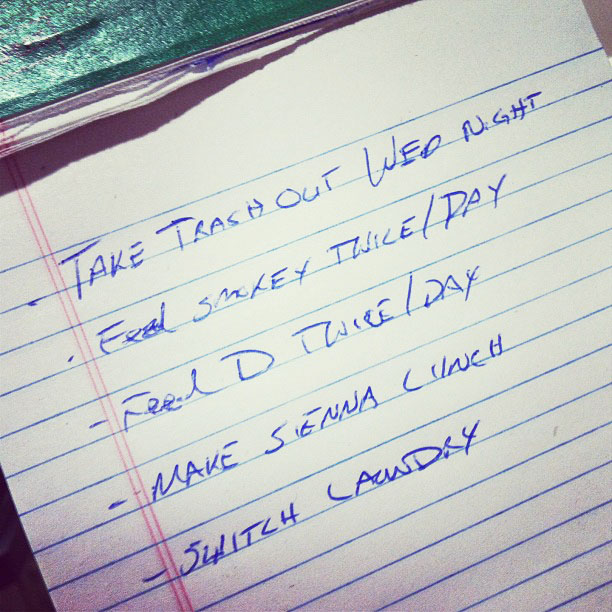 - TAKE TRASH OUT WED NIGHT
- Feed SMOKEY TWICE/DAY
- Feed D TWICE/DAY
- MAKE SIENNA LUNCH
- SWITCH LAUNDRY